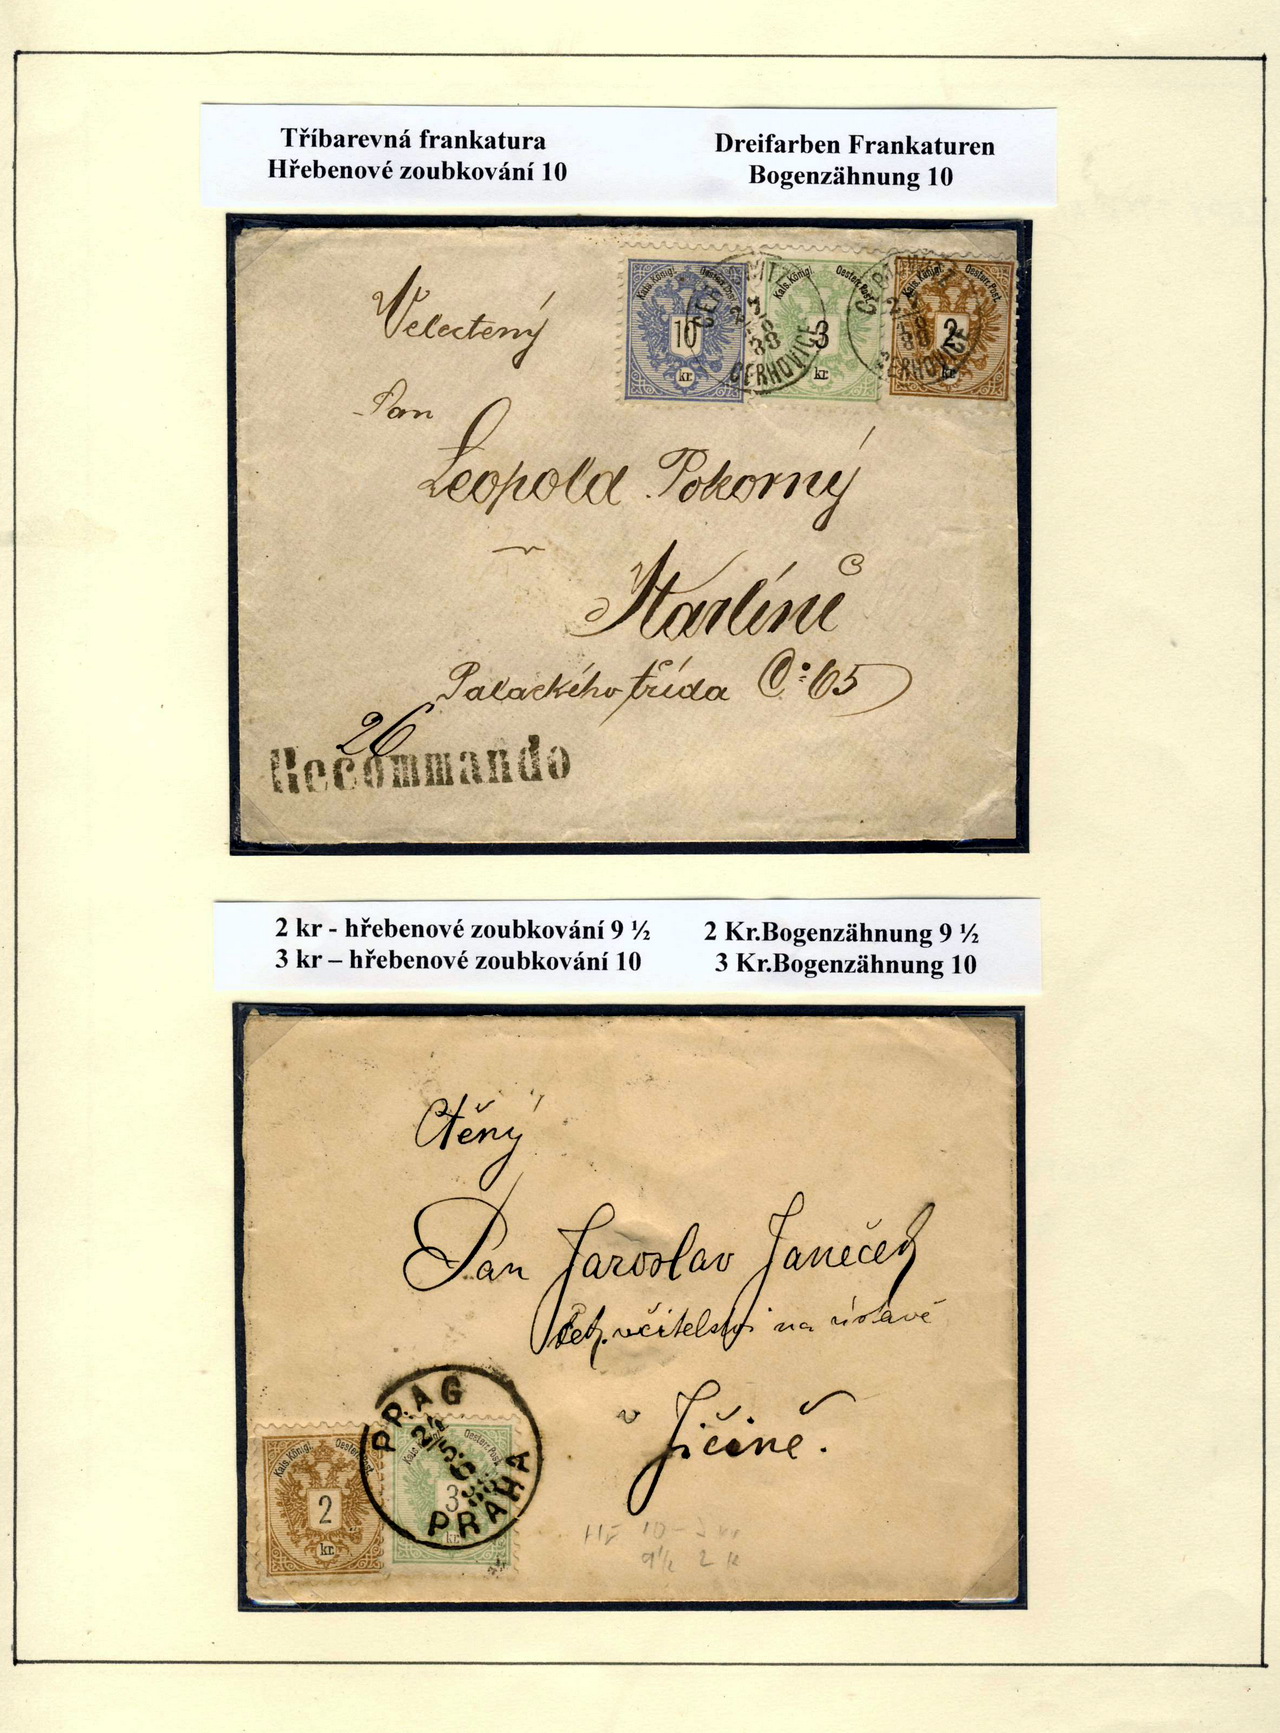 Tříbarevná frankatura
Hřebenové zoubkování 10
Dreifarben Frankaturen
Bogenzähnung 10
Kais. Königl. Oesterr. Post.
10
kr.
Kais. Königl. Oesterr. Post.
3
kr.
Kais. Königl. Oesterr. Post.
2
kr.
88
CERHOVICE
88
CERHOVICE
Velectený
Pan
Leopold Pokorný
v
Karlíně
Palackého třída Č: 65
26
Recommando
2 kr - hřebenové zoubkování 9 ½
3 kr – hřebenové zoubkování 10
2 Kr.Bogenzähnung 9 ½
3 Kr.Bogenzähnung 10
Ctěný
Pan Jaroslav Janeček
učitelský na ústavě
v Jičíně.
PRAG
PRAHA
Kais. Königl. Oesterr. Post.
2
kr.
Kais. Königl. Oesterr. Post.
3
kr.
10 – 3 kr
9½ 2 k